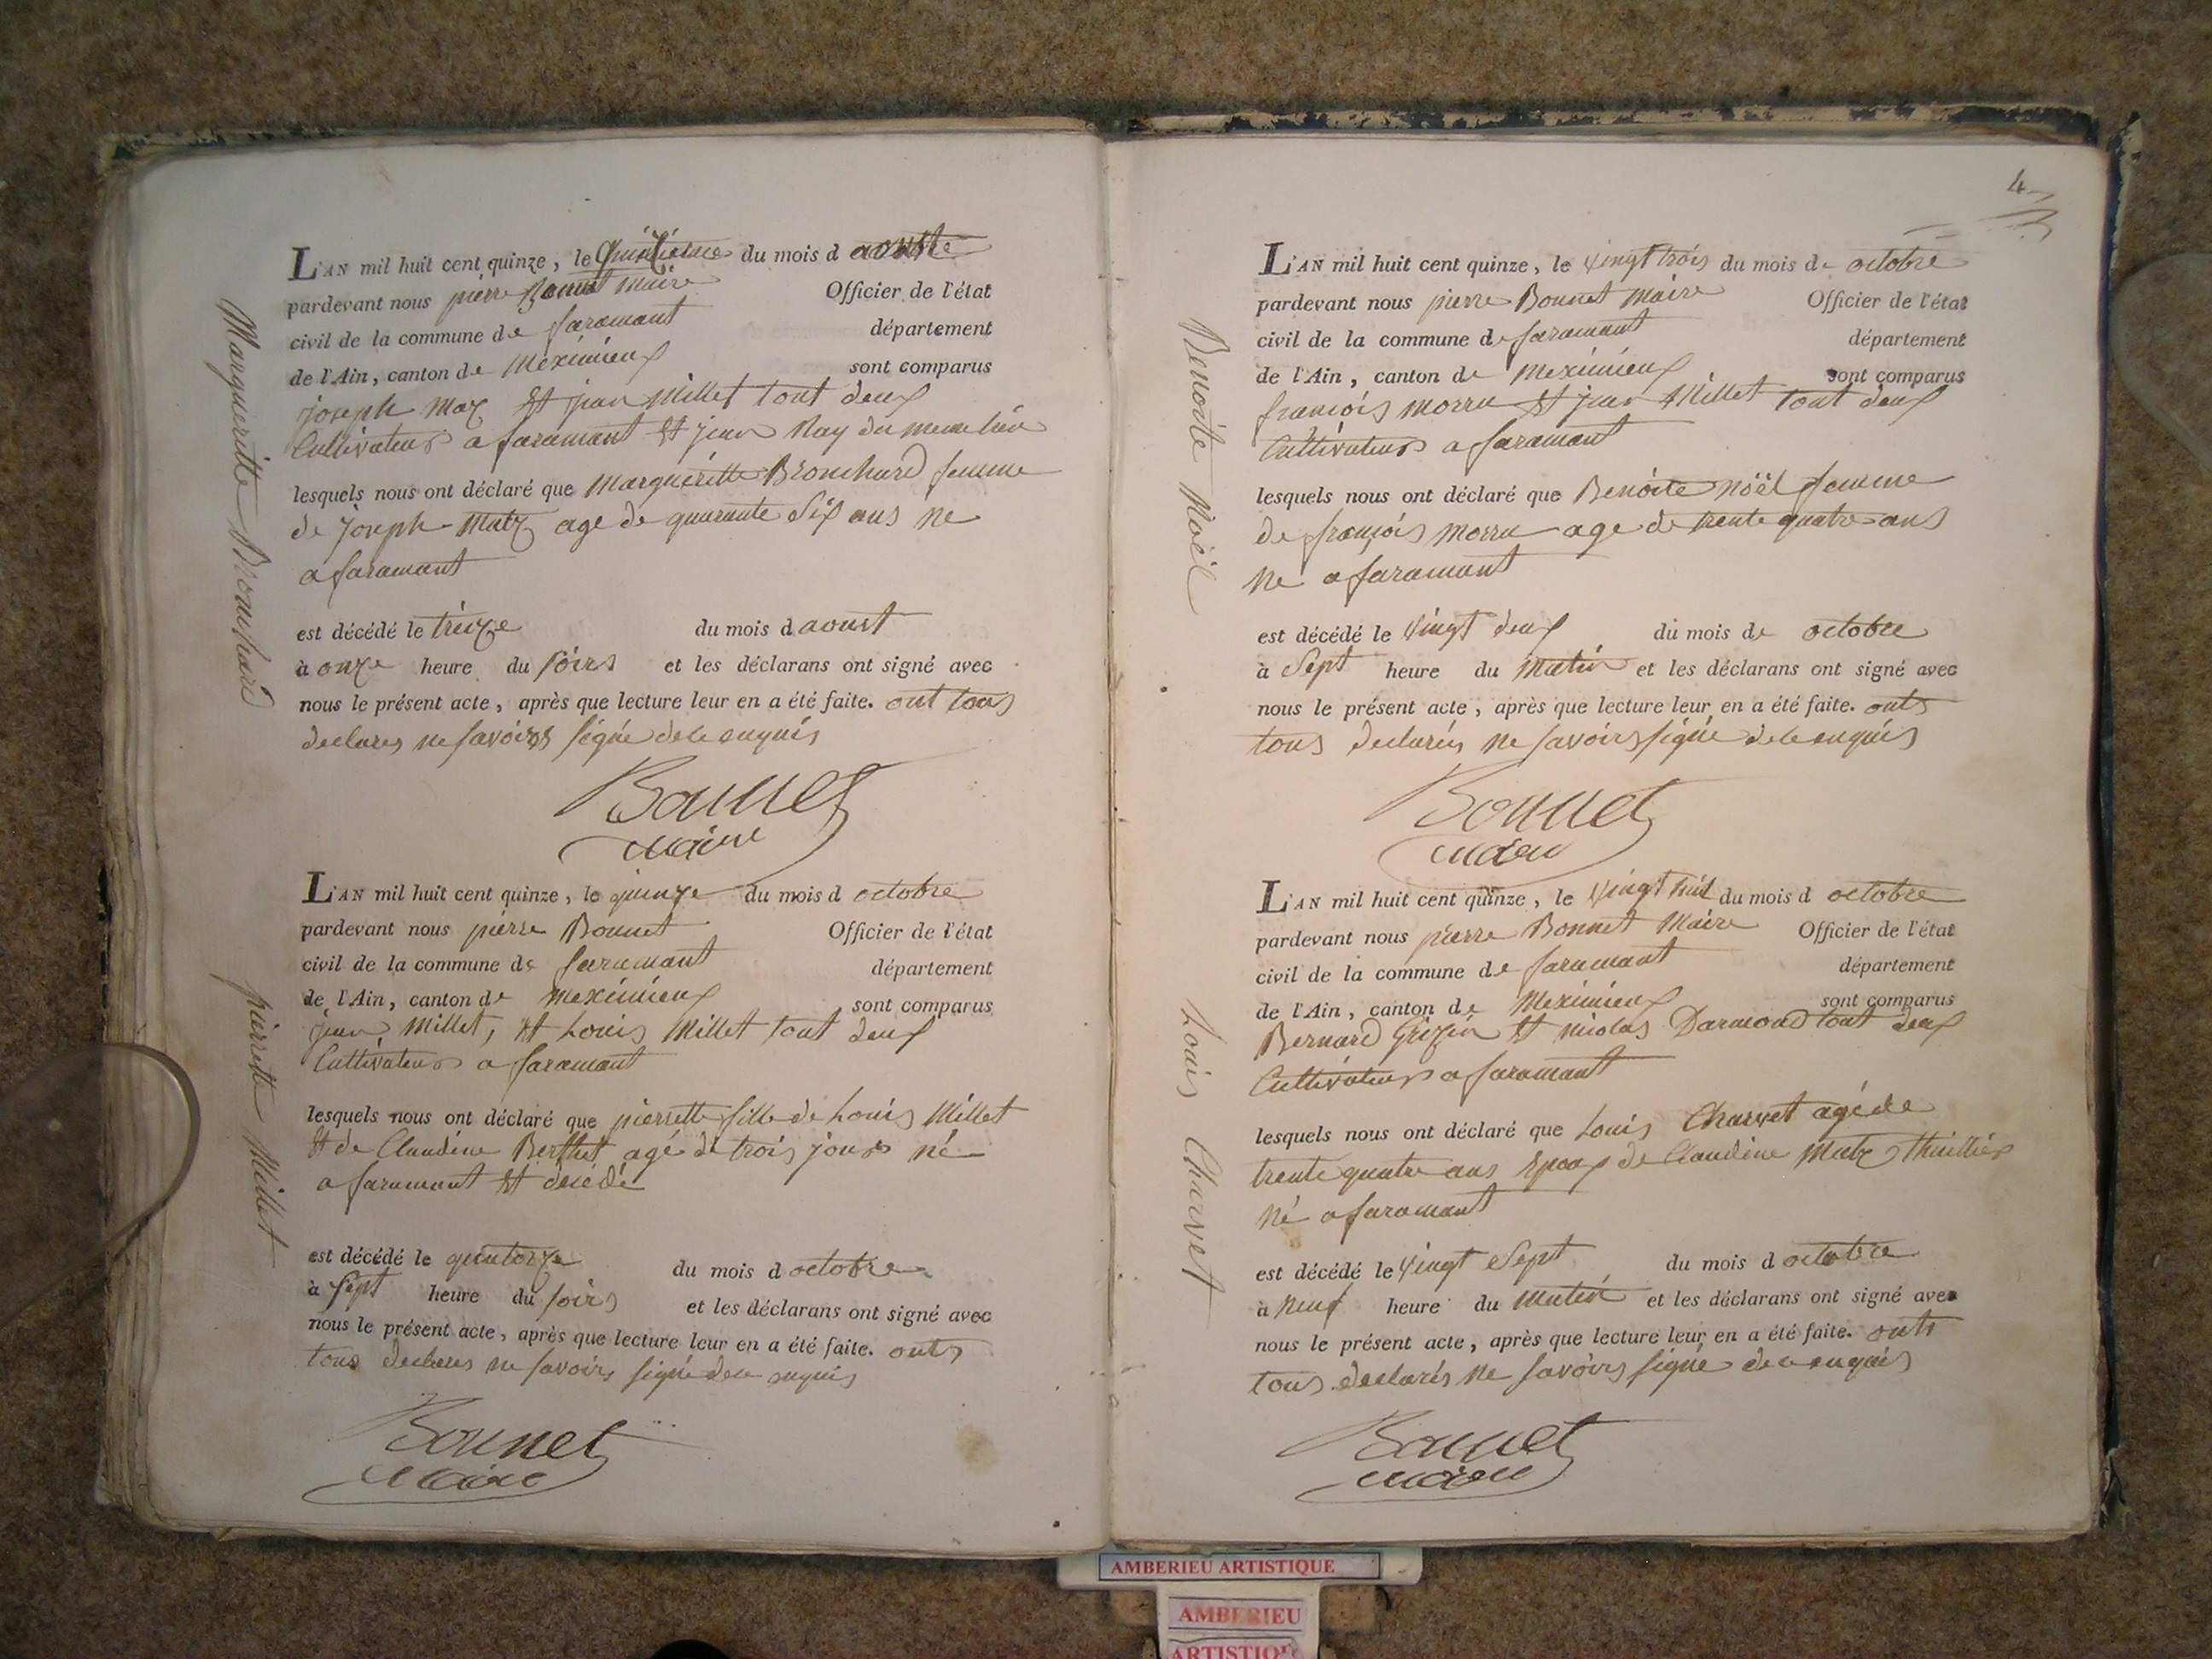 Margueritte Bronchard
L'AN mil huit cent quinze, le Quinzieme du mois d aoust
pardevant nous pierre Bonnet maire Officier de l'état
civil de la commune de faramant département
de l'Ain, canton de Meximieux sont comparus
joseph Et jean Millet tout deux
Cultivateurs a faramant Et jean du meme lieu
lesquels nous ont déclaré que Marguéritte Bronchard femme
de Joseph Matz age de quarante Six ans ne
a faramant
est décédé le treize du mois d aoust
à onze heure du soirs et les déclarans ont signé avec
nous le présent acte, après que lecture leur en a été faite. ont tous
declares ne savoirs signé de le enquis
Bonnet
maire
pierrette Millet
L'AN mil huit cent quinze, le quinze du mois d octobre
pardevant nous pierre Bonnet Officier de l'état
civil de la commune de faramant département
de l'Ain, canton de meximieux sont comparus
jean Millet, Et Louis Millet tout deux
Cultivateurs a faramant
lesquels nous ont déclaré que pierrette fille de Louis Millet
Et de Claudine Berthet agé de trois jours né
a faramant Et décédé
est décédé le quatorze du mois d octobre
à sept heure du soirs et les déclarans ont signé avec
nous le présent acte, après que lecture leur en a été faite. onts
tous declares ne savoirs signé de le enquis
Bonnet
maire
4
Benoite Noël
L'AN mil huit cent quinze, le vingt trois du mois de octobre
pardevant nous pierre Bonnet Maire Officier de l'état
civil de la commune de faramant département
de l'Ain, canton de Meximieux sont comparus
françois morru Et jean Millet tout deux
Cultivateurs a faramant
lesquels nous ont déclaré que Benoite nöel femme
de françois morru age de trente quatre ans
ne a faramant
est décédé le vingt deux du mois de octobre
à Sept heure du Matin et les déclarans ont signé avec
nous le présent acte, après que lecture leur en a été faite. onts
tous declarés ne savoirs signé de le enquis
Bonnet
maire
Louis Charvet
L'AN mil huit cent quinze, le vingt huit du mois d octobre
pardevant nous pierre Bonnet Maire Officier de l'état
civil de la commune de faramant département
de l'Ain, canton de Meximieux sont comparus
Bernard Et nicolas Darmond tout deux
Cultivateurs a faramant
lesquels nous ont déclaré que Louis Charvet agé de
trente quatre ans Epoux de Claudine Matz
né a faramant
est décédé le vingt Sept du mois d octobre
à neuf heure du matin et les déclarans ont signé avec
nous le présent acte, après que lecture leur en a été faite. onts
tous declarés ne savoirs signé de le enquis
Bonnet
maire
AMBERIEU ARTISTIQUE
AMBERIEU